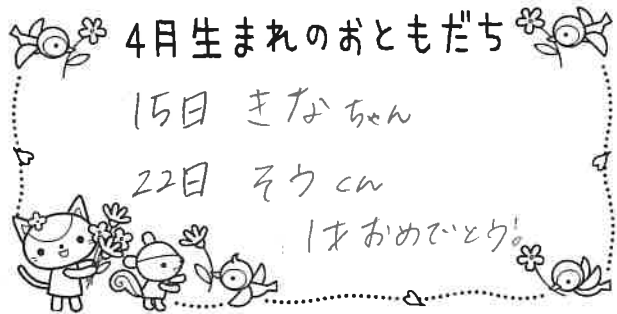 4月生まれのおともだち
15日 きなちゃん
22日 そうくん
1才おめでとう!